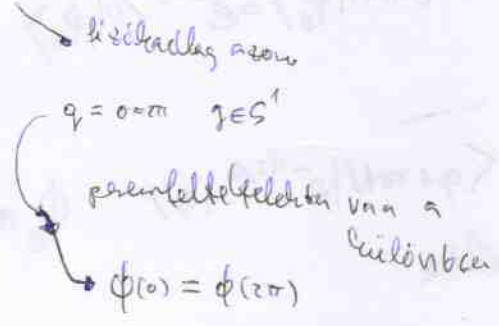 fizikailag azonos
q = 0 = 2π   q ∈ S¹
peremfeltételekben van a
különbség
ϕ(0) = ϕ(2π)